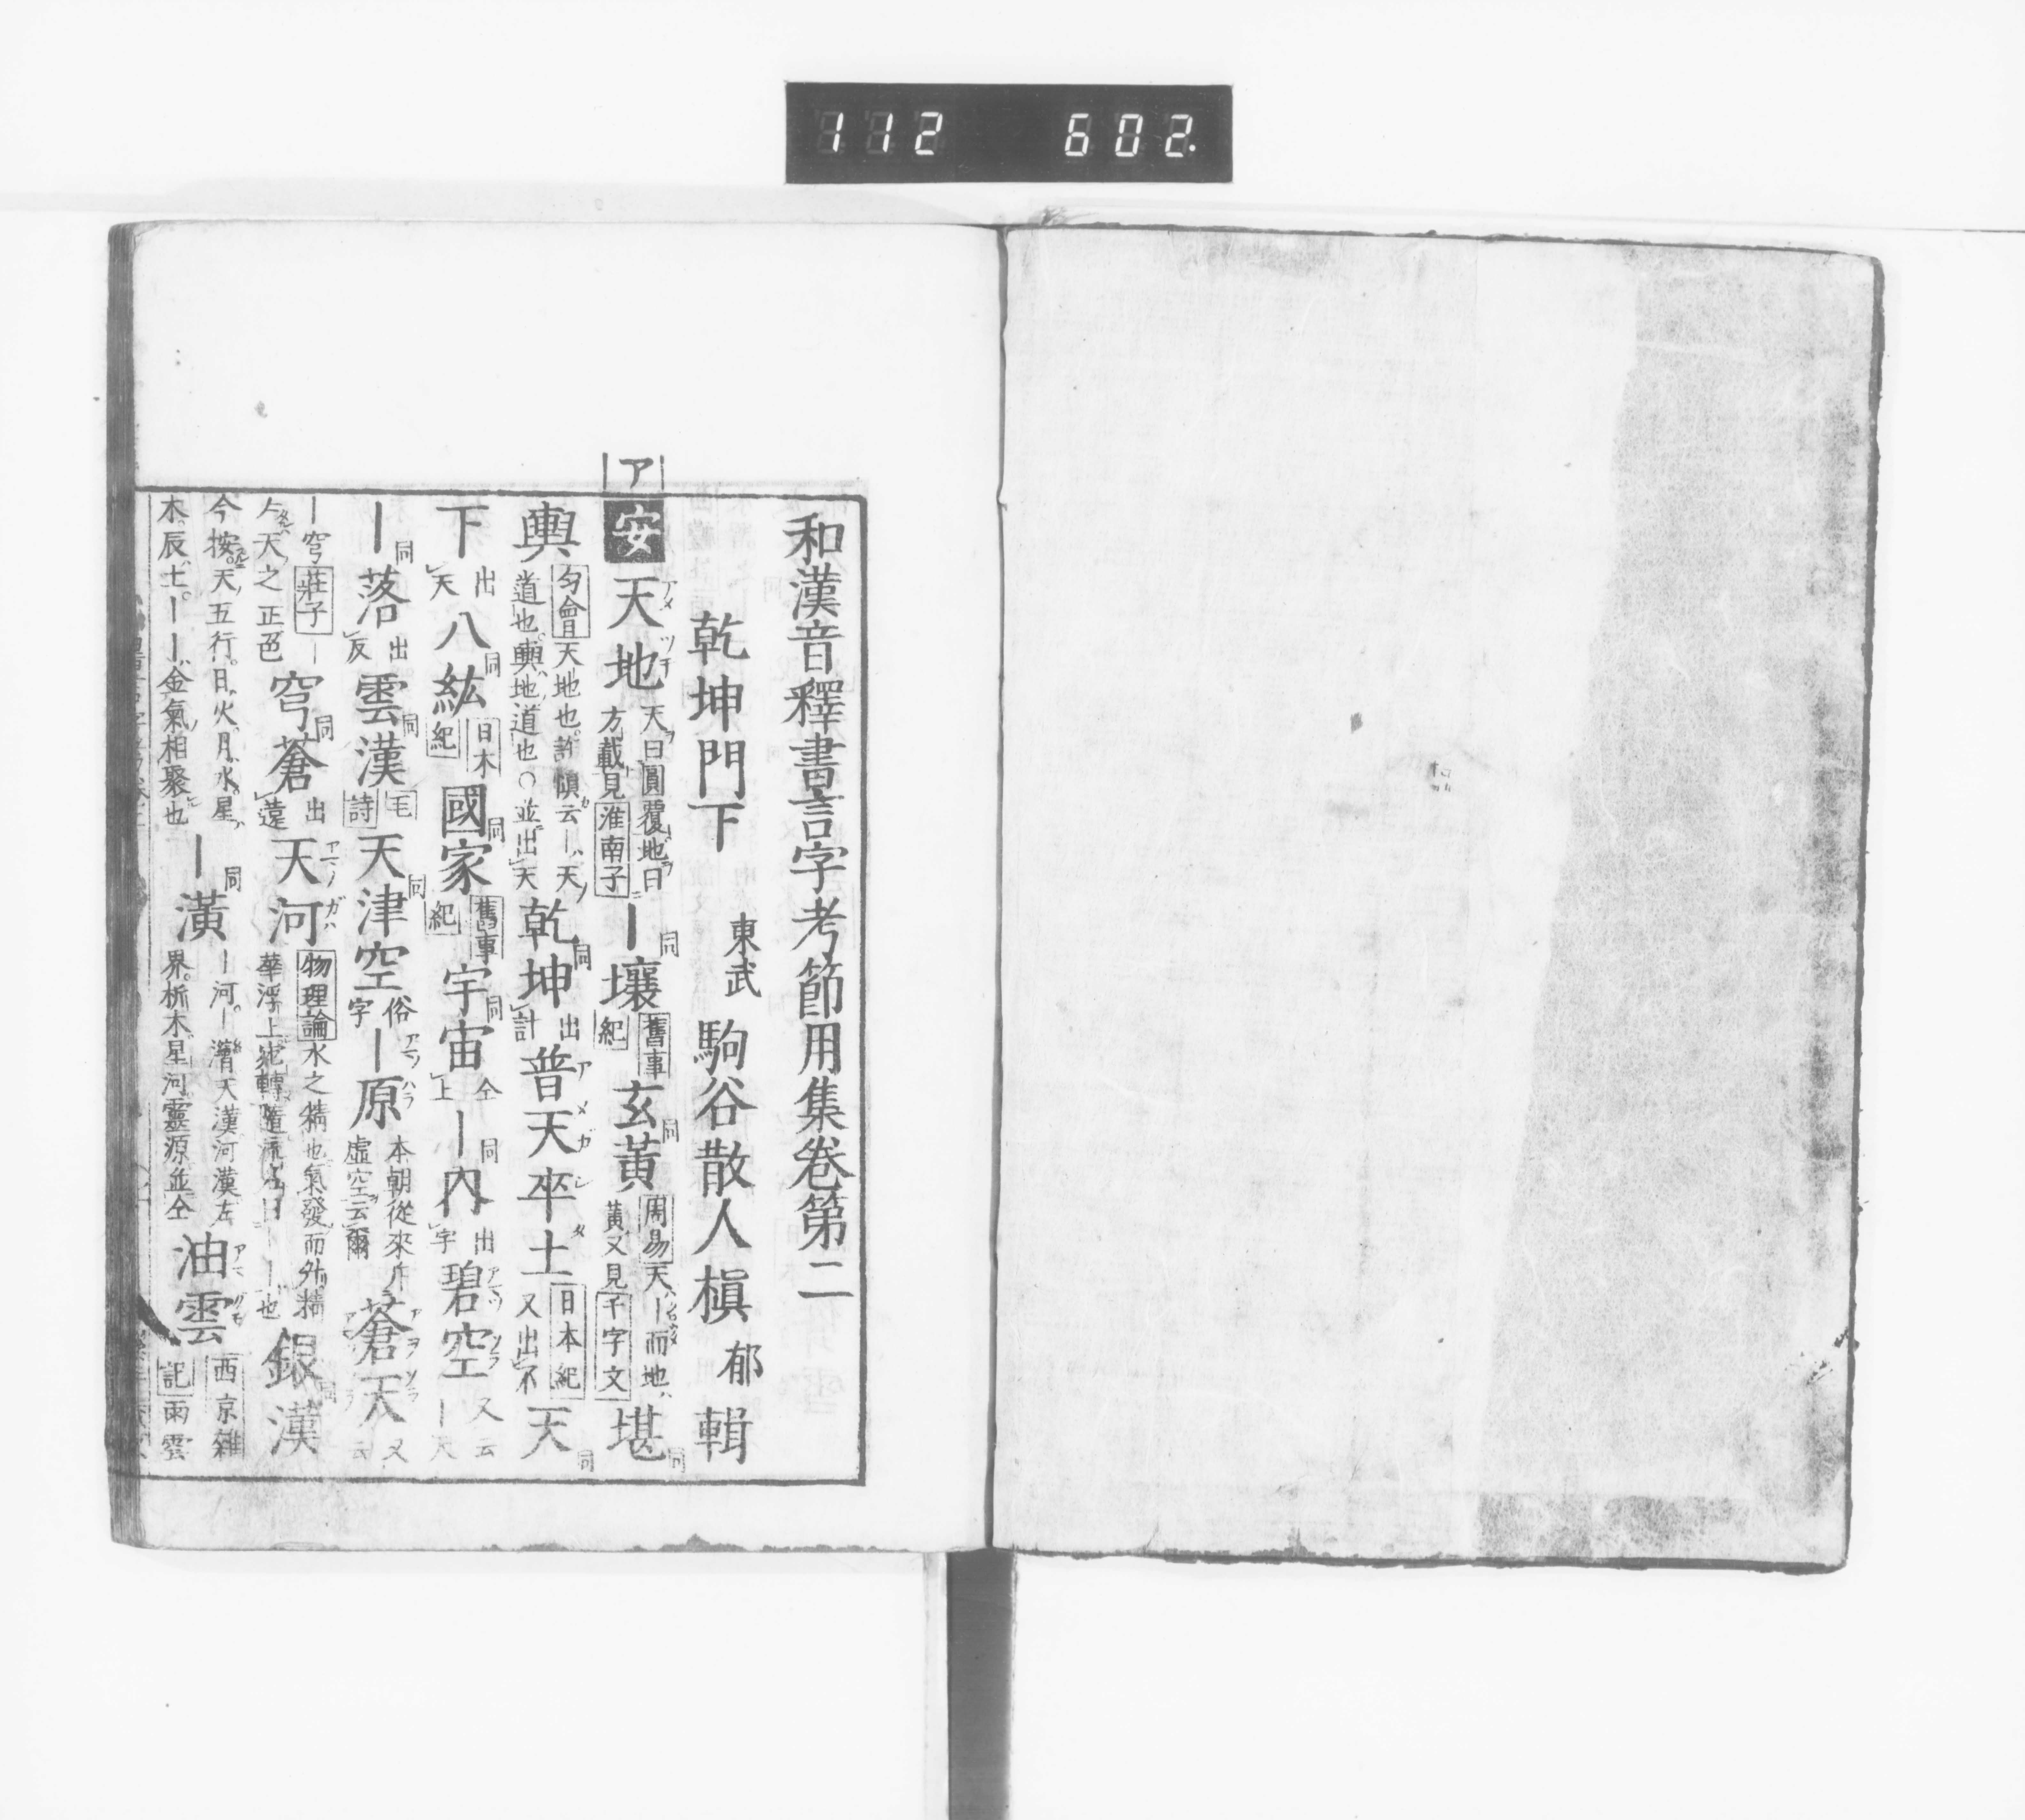 112 602.
和漢音釋書言字考節用集卷第二
乾坤門下 東武 駒谷散人槇 郁 輯
ア
安 天地 天曰圓覆地曰方載見淮南子 ｜壤 同 舊事紀 玄黃 同 周易天｜而地黃又見千字文 堪 同
輿 匀會天地也許愼云｜天道也輿地道也○並出天 乾坤 同 出計 普天卒土 日本紀又出不 天 同
下 出天 八紘 同 日本紀 國家 同 舊事紀 宇宙 同 仝上 ｜內 同 出宇 碧空 又云｜天
｜落 同 出反 雲漢 同 毛詩 天津空 同 俗字 ｜原 本朝從來斥虛空云爾 蒼天 又云
｜穹 莊子｜天之正色 穹蒼 同 出遠 天河 物理論水之精也氣發而外精華浮上宛轉隨流名曰｜｜也 銀漢 同
今按天五行日火月水星木辰土｜｜金氣相聚也 ｜潢 同 ｜河｜漕天漢河漢左界析木星河靈源並仝 油雲 西京雜記雨雲